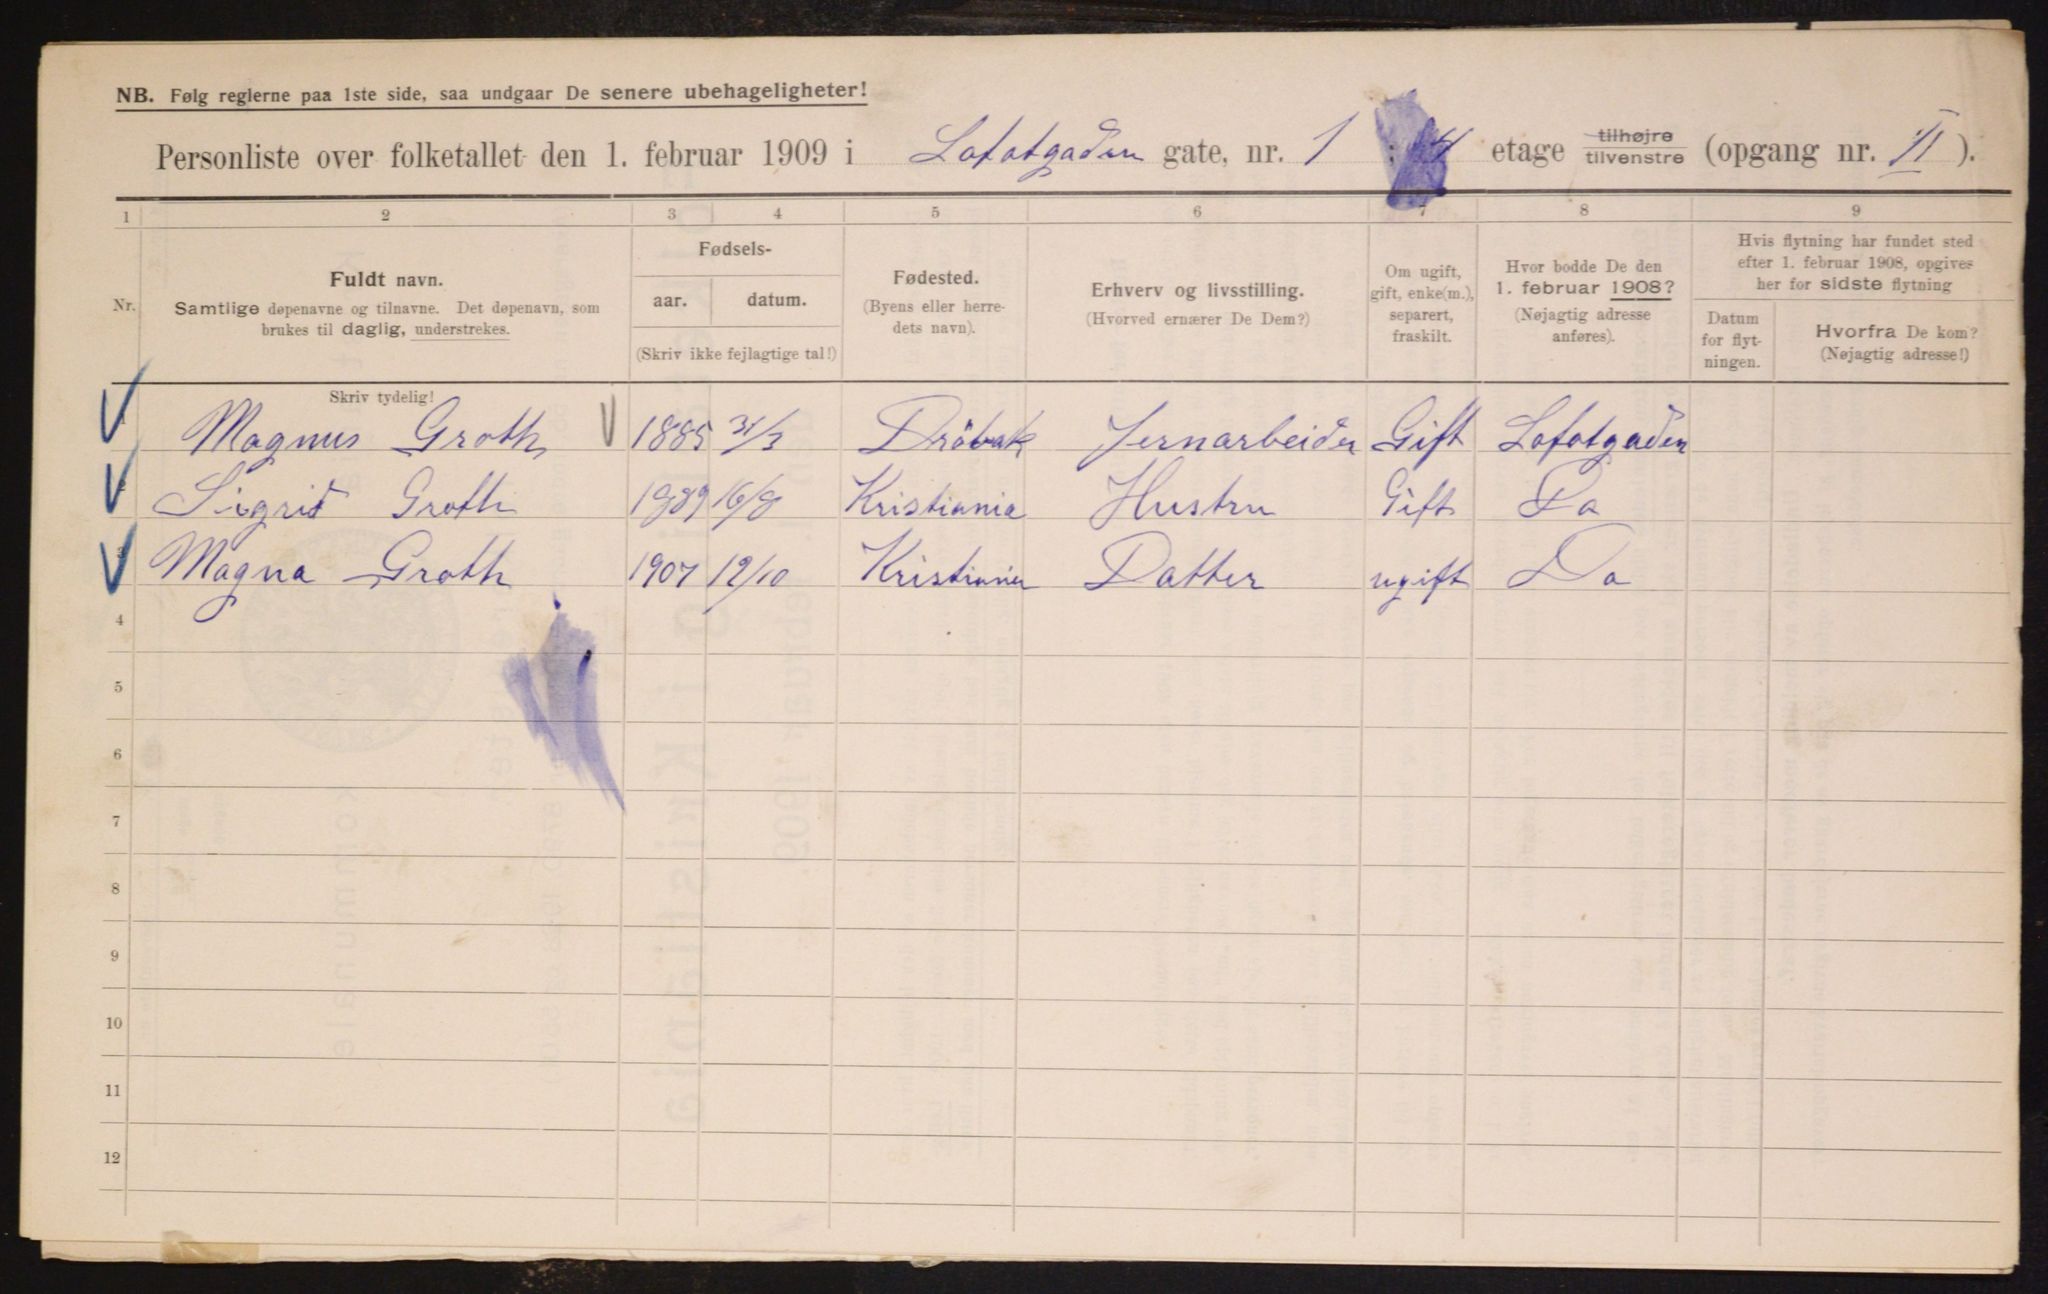 NB. Følg reglerne paa 1ste side, saa undgaar De senere ubehageligheter!
Personliste over folketallet den 1. februar 1909 i Lofotgaden gate, nr. 1 : 4 etage tilhøjre tilvenstre (opgang nr. II).
1 2 3 4 5 6 7 8 9
Nr.
Fuldt navn.
Samtlige døpenavne og tilnavne. Det døpenavn, som
brukes til daglig, understrekes.
Skriv tydelig!
Fødsels-
aar. datum.
(Skriv ikke fejlagtige tal!)
Fødested.
(Byens eller herre-
dets navn).
Erhverv og livsstilling.
(Hvorved ernærer De Dem?)
Om ugift,
gift, enke(m.),
separert,
fraskilt.
Hvor bodde De den
1. februar 1908?
(Nøjagtig adresse
anføres).
Hvis flytning har fundet sted
efter 1. februar 1908, opgives
her for sidste flytning
Datum
for flyt-
ningen.
Hvorfra De kom?
(Nøjagtig adresse!)
1 Magnus Groth 1885 31/3 Dröbak Jernarbeider Gift Lofotgaden
2 Sigrid Groth 1889 16/8 Kristiania Hustru Gift Do
3 Magna Groth 1907 12/10 Kristiania Datter ugift Do
4
5
6
7
8
9
10
11
12